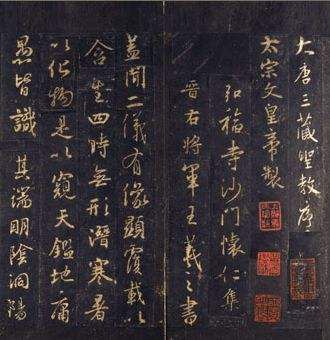 大唐三藏聖教序
太宗文皇帝製
弘福寺沙門懷仁集
晉右將軍王羲之書
蓋聞二儀有像顯覆載以
含生四時無形潛寒暑
以化物是以窺天鑑地庸
愚皆識其端明陰洞陽